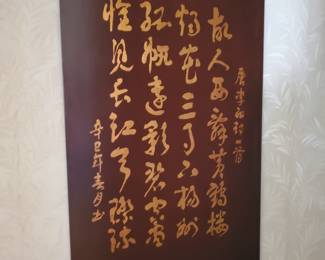 唐李白詩一首
故人西辭黃鶴樓
烟花三月下揚州
孤帆遠影碧空盡
惟見長江天際流
辛巳年春月书